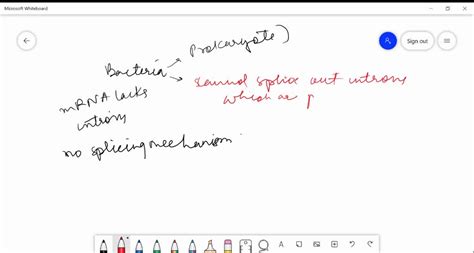 Microsoft Whiteboard
Sign out
Prokaryote)
Bacteria
cannot splice out introns
which are p
mRNA lacks
introns
no splicing mechanism
A